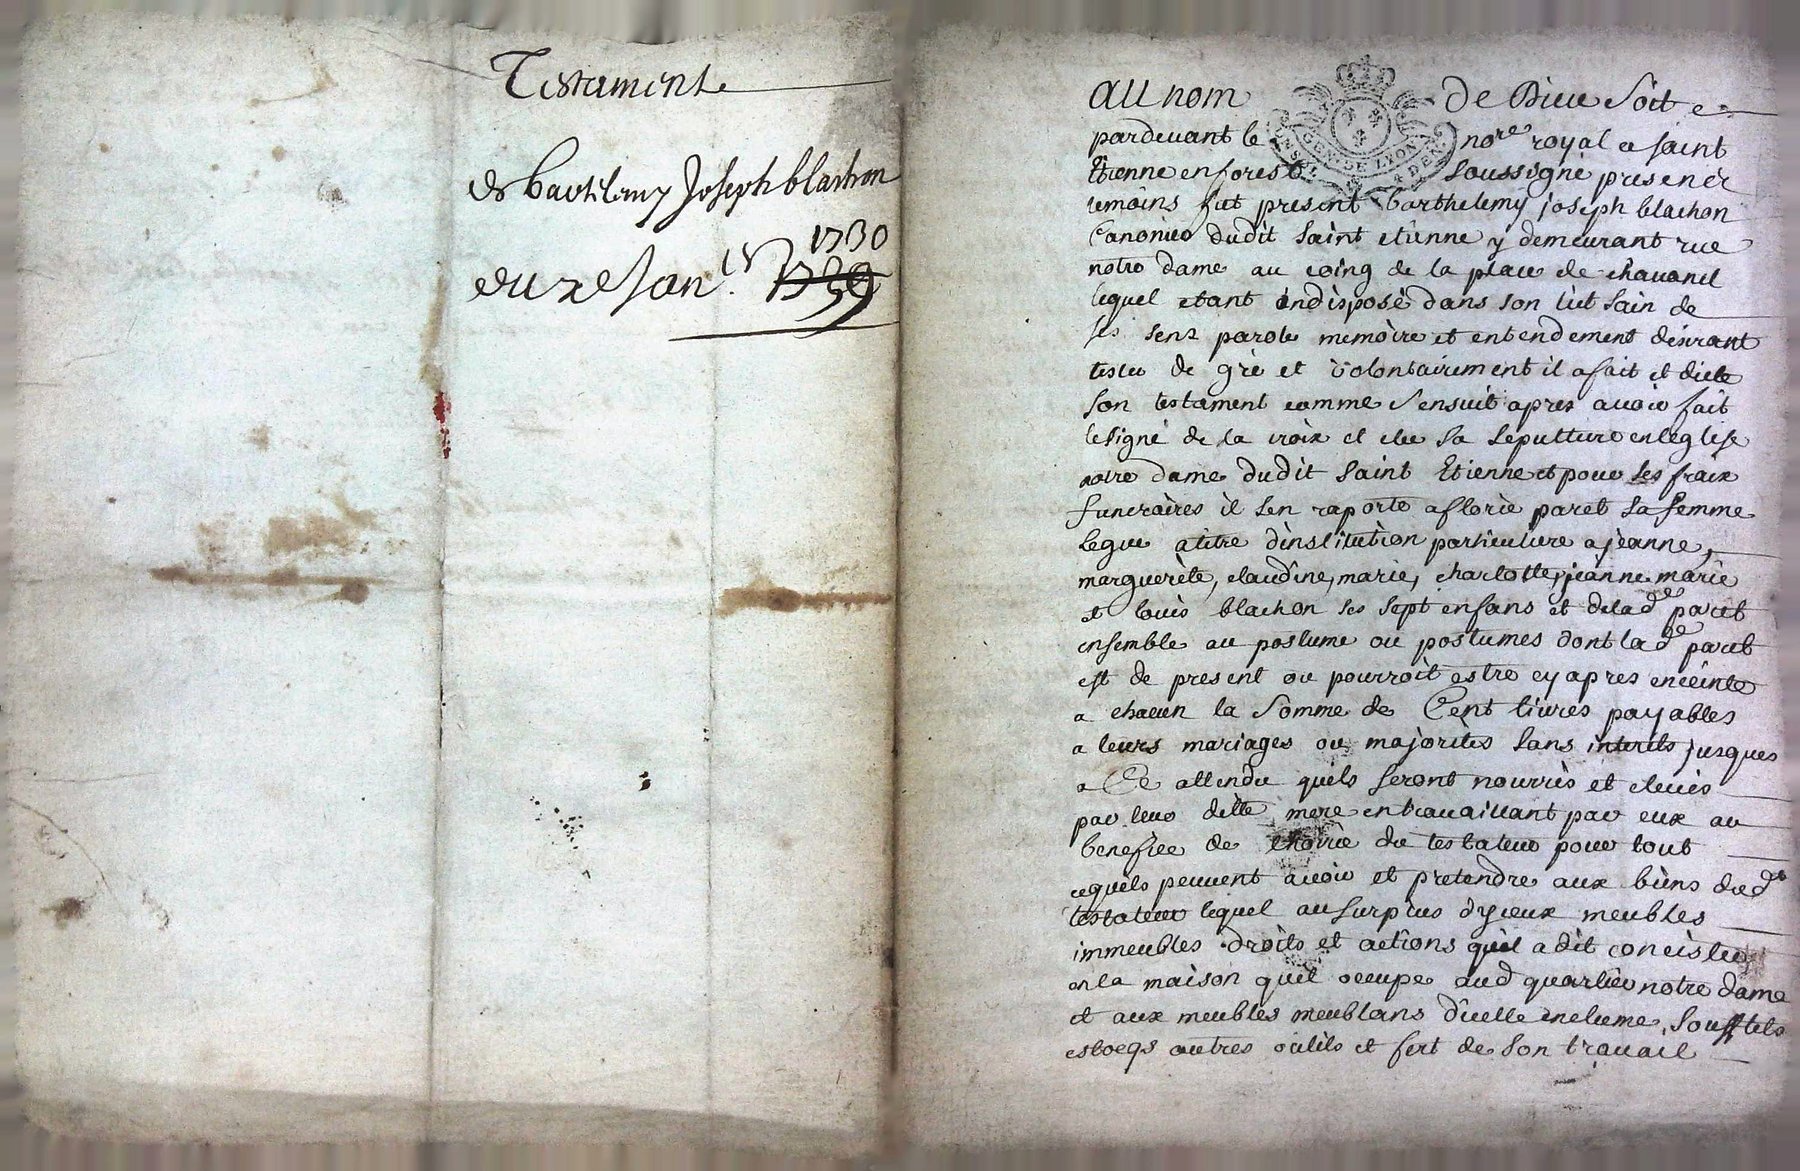 Testament
de bartelemy Joseph blachon
du xe Janer 1730
1739
au nom de Dieu soit
pardevant le nore royal a saint
Etienne en forest soussigné presens
temoins fut present barthelemy joseph blachon
Canonier dudit saint etienne y demeurant rue
notre dame au coing de la place de chavanel
lequel etant indisposé dans son lict sain de
ses sens parole memoire et entendement desirant
tester de gré et volontairement il a fait et dicte
son testament comme s'ensuit apres avoir fait
le signe de la croix et elu sa sepulture en leglise
notre dame dudit saint Etienne et pour ses fraix
funeraires il sen raporte a florie paret sa femme
legue a titre d'institution particuliere a jeanne,
marguerite, claudine, marie, charlotte, jeanne marie
et louis blachon ses sept enfans et de lad de paret
ensemble au postume ou postumes dont lad de paret
est de present ou pourroit estre cy apres enceinte
a chacun la somme de Cent livres payables
a leurs mariages ou majorites sans interets jusques
a Ce attendu quils seront nourris et eleves
par leur ditte mere en travaillant par eux au
benefice de hoirie du testateur pour tout
cequils peuvent avoir et pretendre aux biens dud
testateur lequel au surplus d'yceux meubles
immeubles droits et actions quil a dit concister
en la maison quil occupe aud quartier notre dame
et aux meubles meublans d'icelle enclume, soufflets
estocqs autres outils et fert de son travail